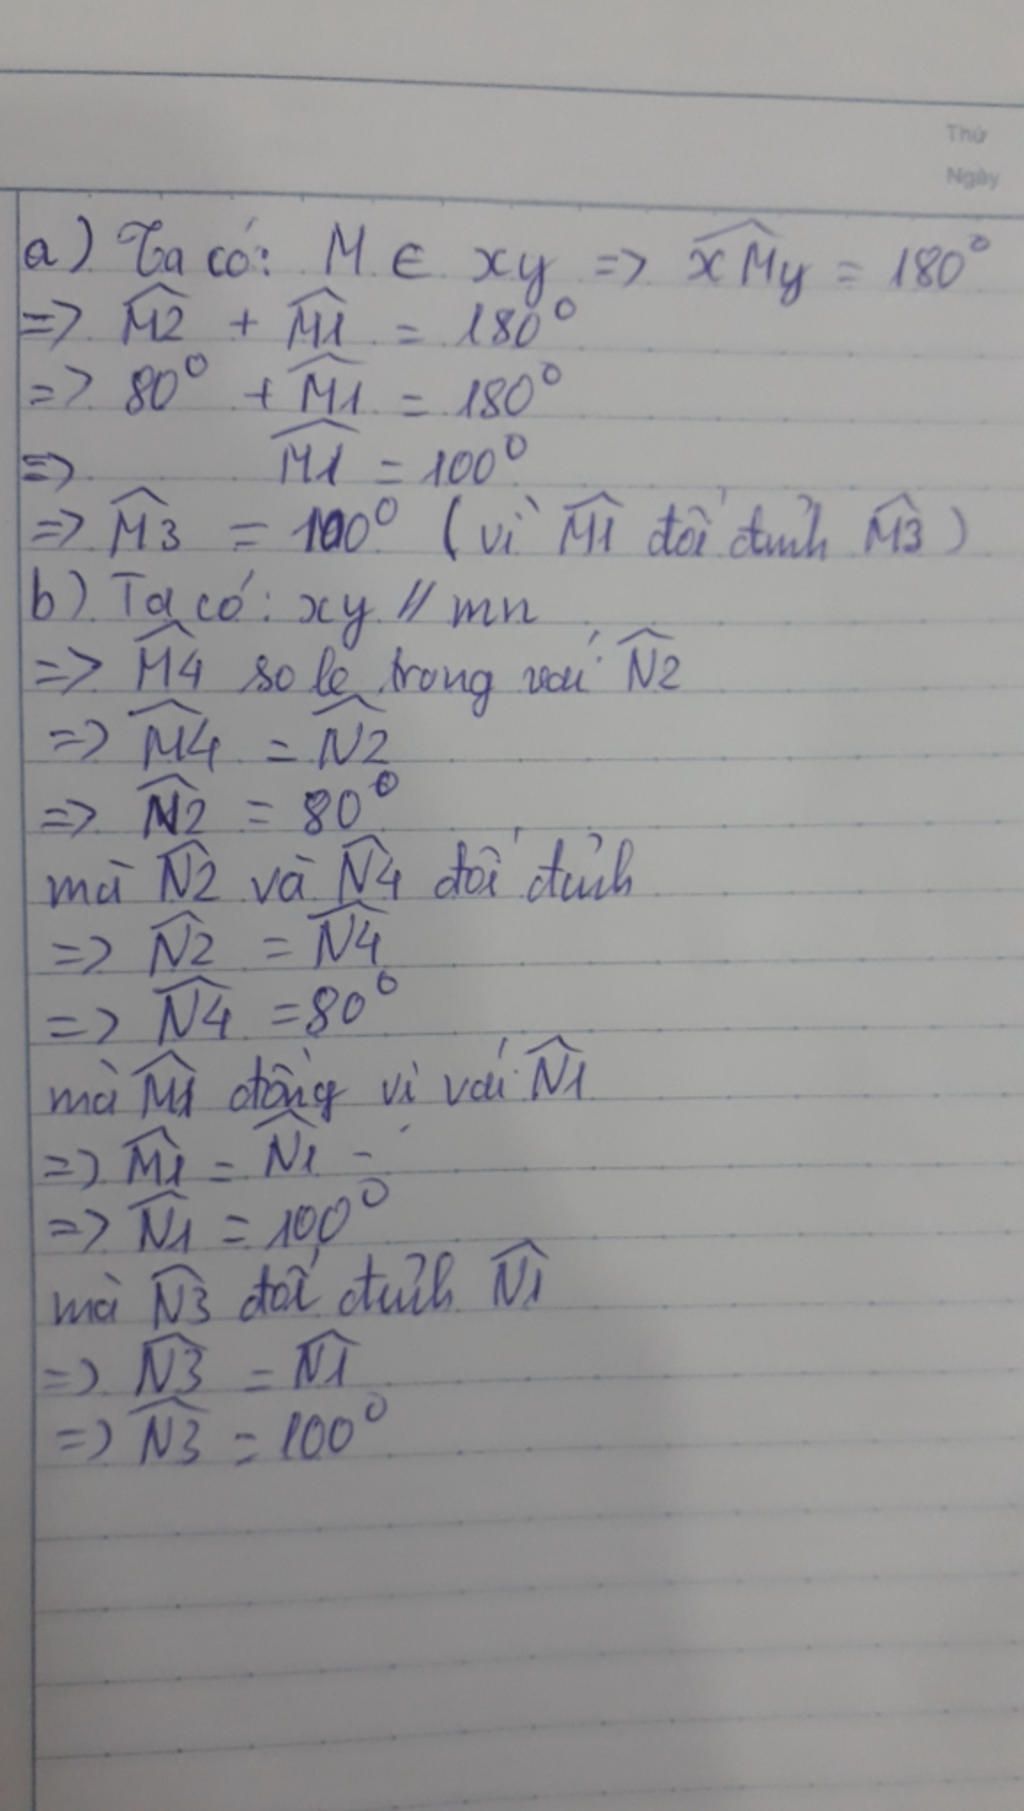 Thứ
Ngày
a) Ta có: M ∈ xy => \widehat{xMy} = 180°
=> \widehat{M2} + \widehat{M1} = 180°
=> 80° + \widehat{M1} = 180°
=> \widehat{M1} = 100°
=> \widehat{M3} = 100° (vì \widehat{M1} đối đỉnh \widehat{M3})
b) Ta có: xy // mn
=> \widehat{M4} so le trong với \widehat{N2}
=> \widehat{M4} = \widehat{N2}
=> \widehat{N2} = 80°
mà \widehat{N2} và \widehat{N4} đối đỉnh
=> \widehat{N2} = \widehat{N4}
=> \widehat{N4} = 80°
mà \widehat{M1} đồng vị với \widehat{N1}
=> \widehat{M1} = \widehat{N1}
=> \widehat{N1} = 100°
mà \widehat{N3} đối đỉnh \widehat{N1}
=> \widehat{N3} = \widehat{N1}
=> \widehat{N3} = 100°